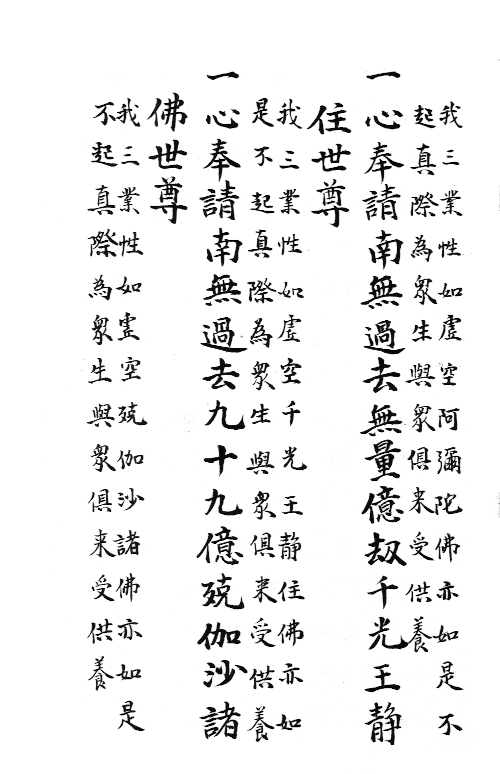 我三業性如虛空阿彌陀佛亦如是不
起真際為衆生與衆俱来受供養
一心奉請南無過去無量億劫千光王静
住世尊
我三業性如虛空千光王静住佛亦如
是不起真際為衆生與衆俱来受供養
一心奉請南無過去九十九億殑伽沙諸
佛世尊
我三業性如虛空殑伽沙諸佛亦如是
不起真際為衆生與衆俱来受供養